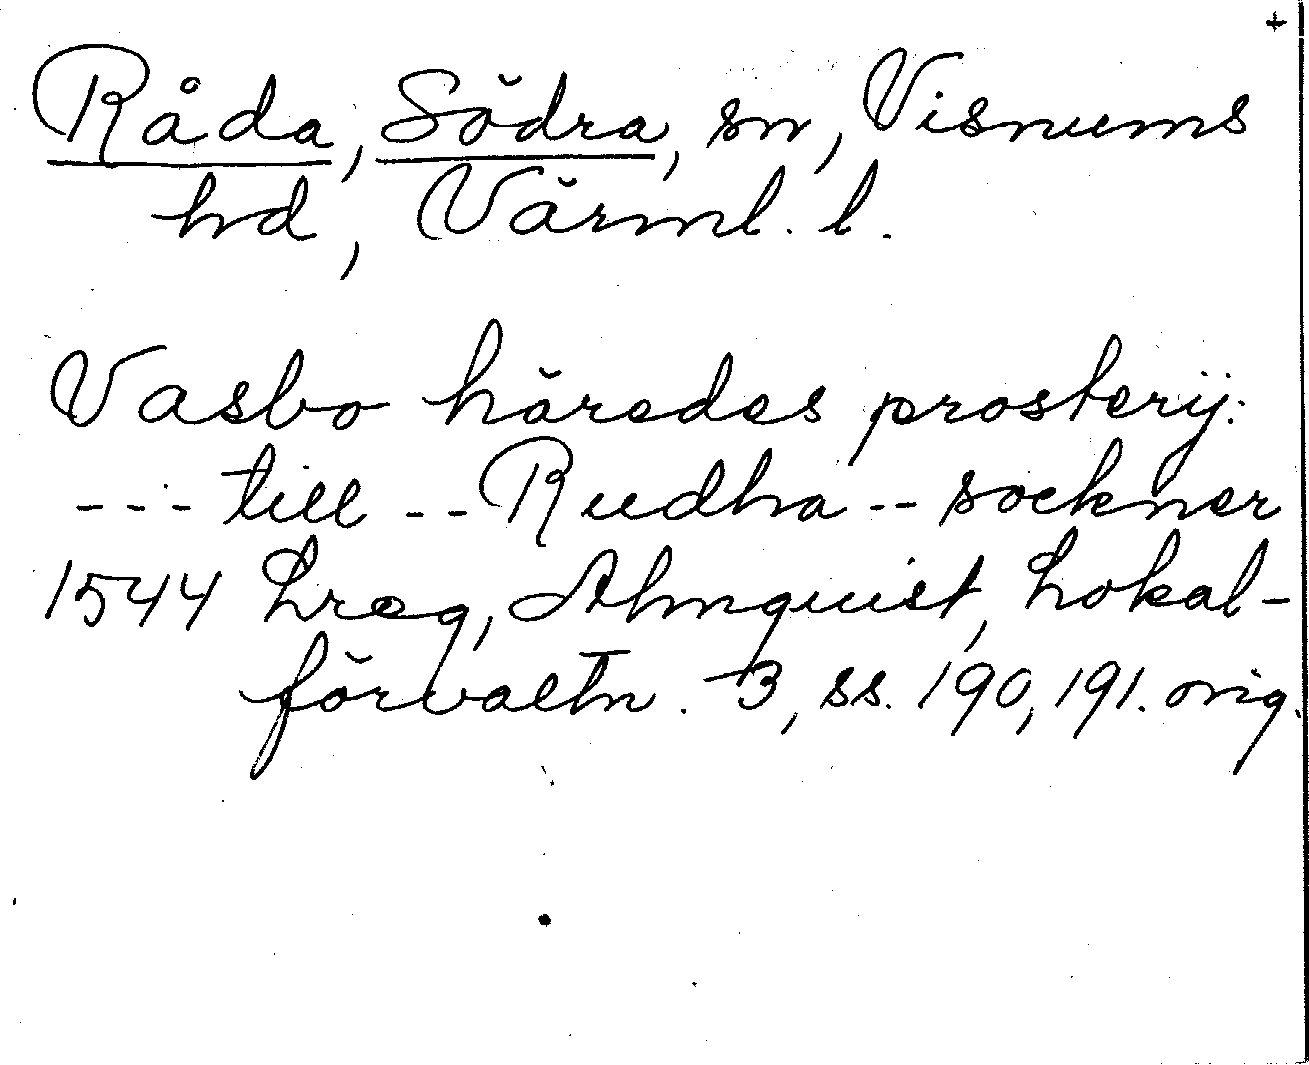 +
Råda, Södra, sn, Visnums
hd, Värml. l.
Vasbo häredes prosterij:
--- till -- Rudha -- sockner
1544 Lreg, Almquist, Lokal-
förvaltn. 3, ss. 190, 191. orig.